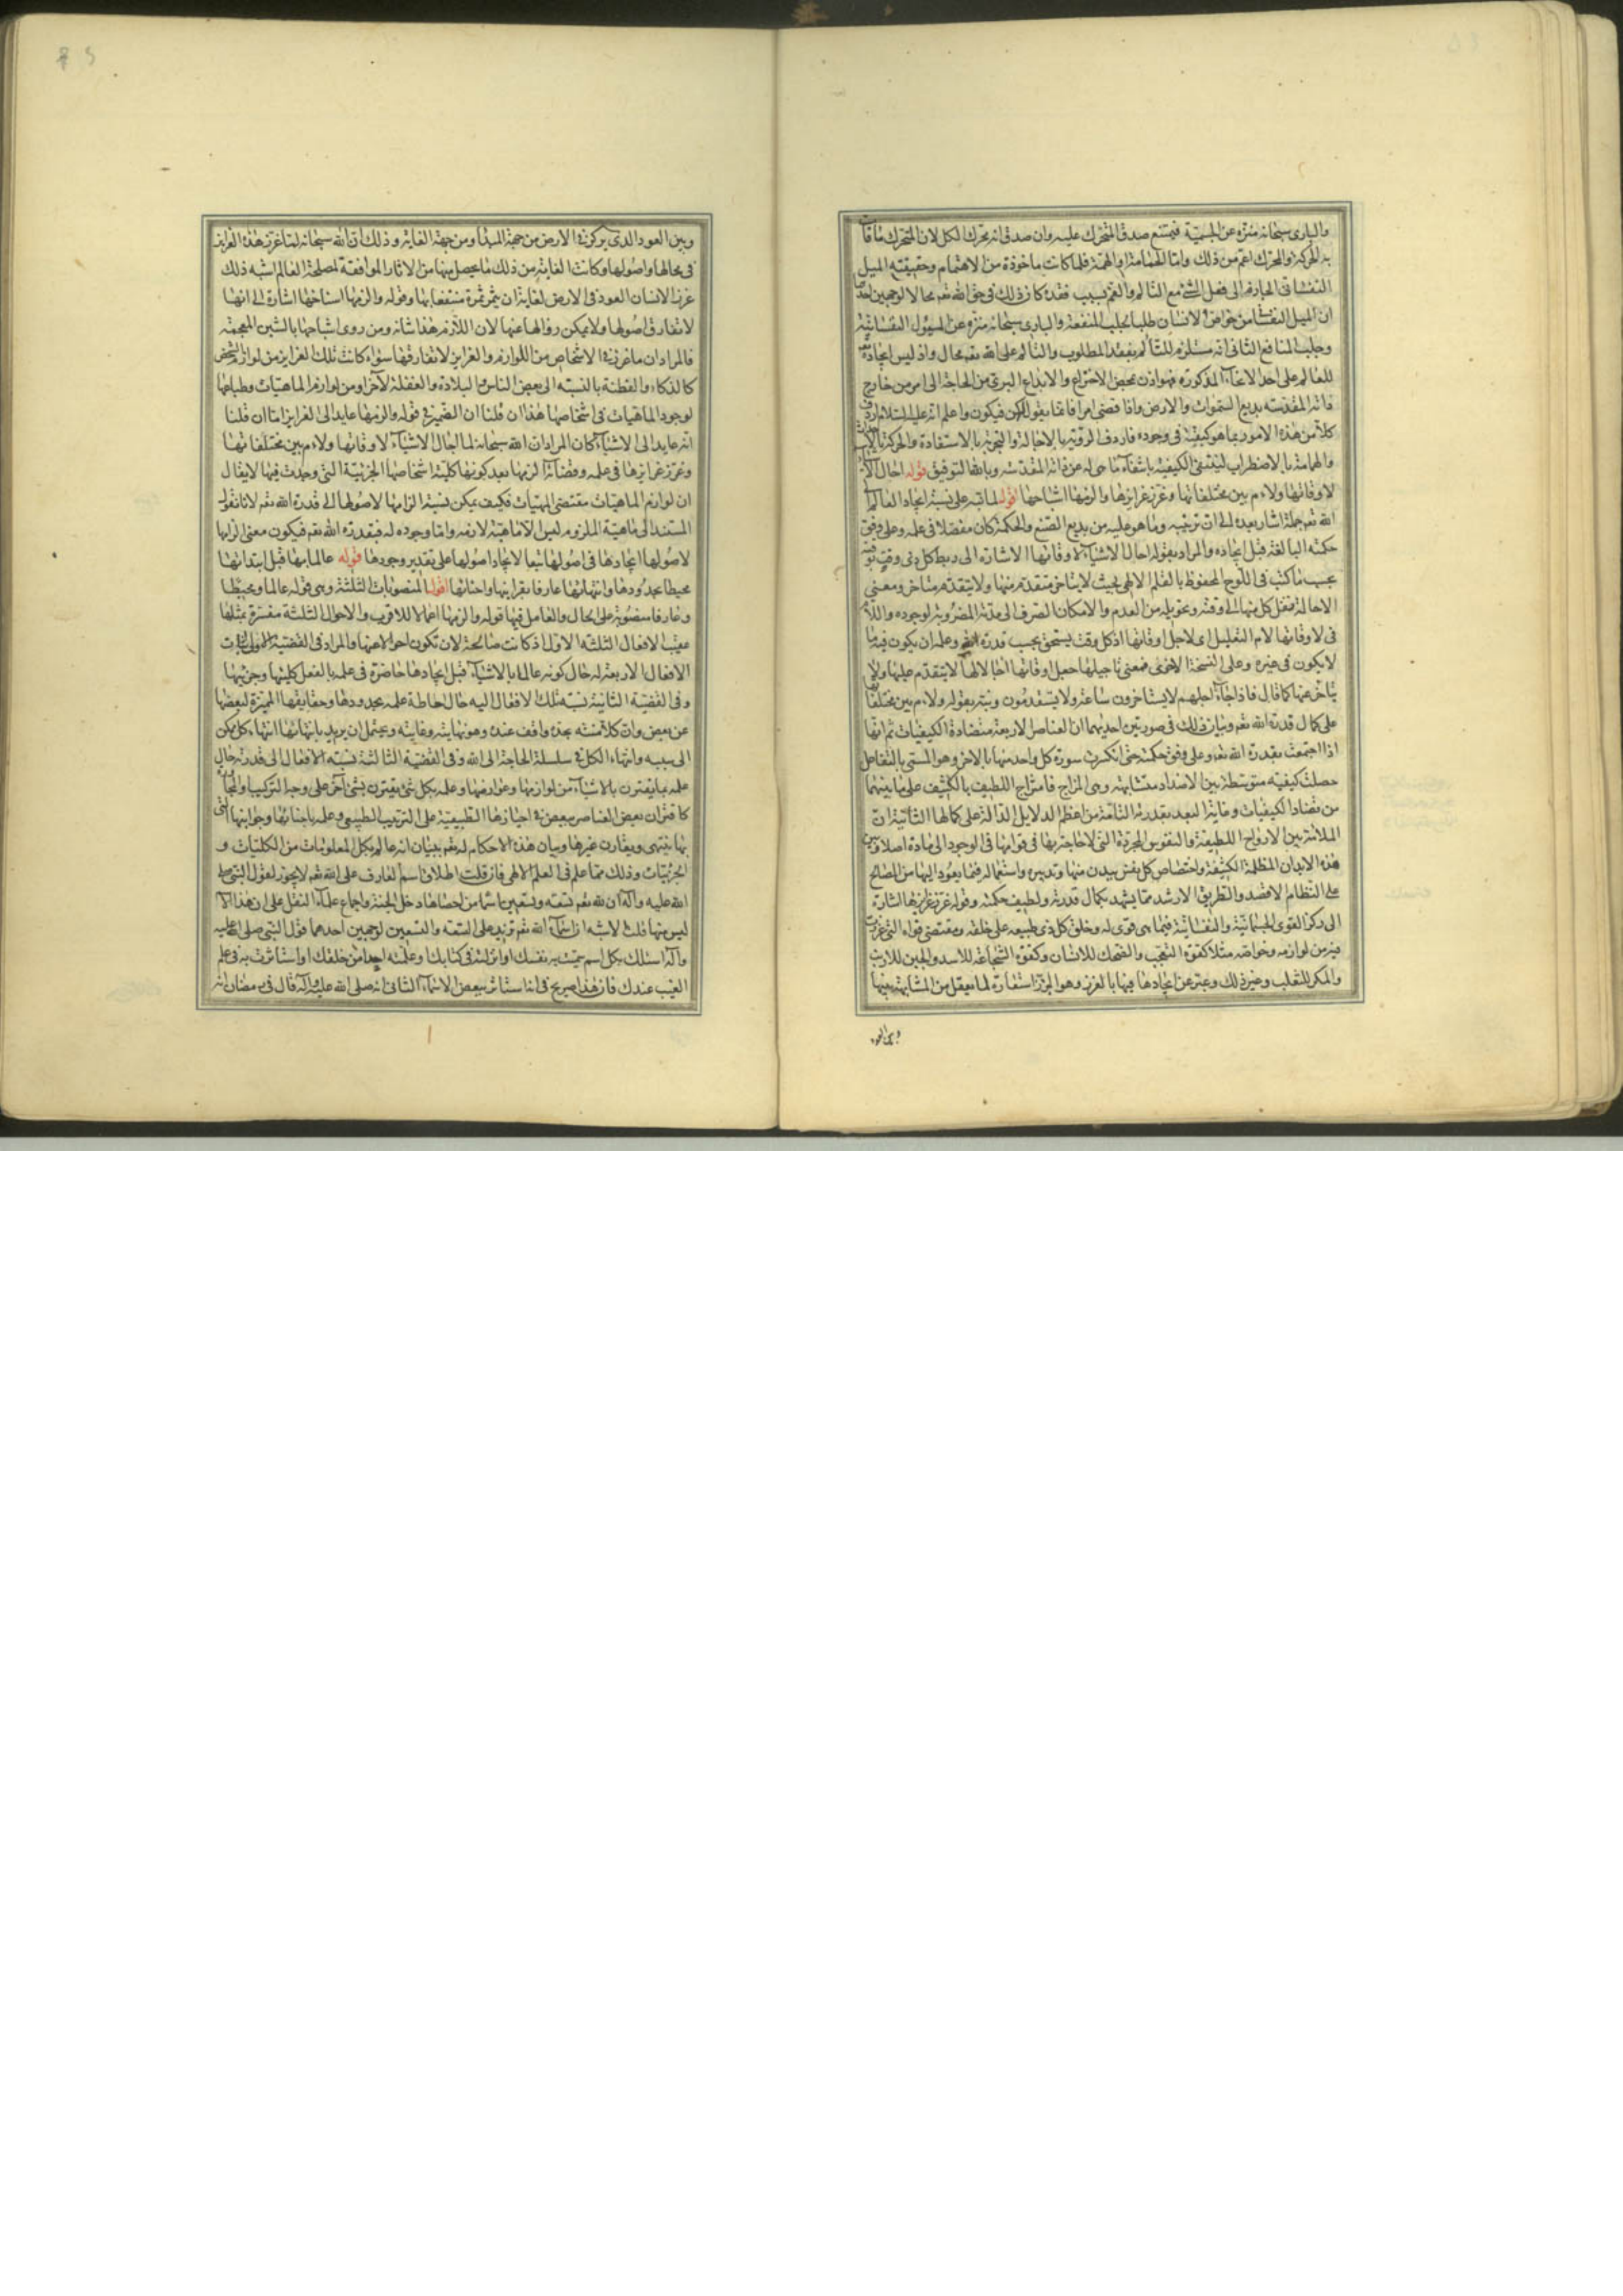 والبارى سبحانه منزه عن الجسمية فيمتنع صدق المتحرك عليه وان صدق انه تحرك الكل لان المتحرك ما قامت
به الحركة والمحرك اعم من ذلك واما الهمامة او الهمة فلما كانت ماخوذة من الاهتمام وحقيقته الميل
النفسانى الجازم الى فعل الشئ مع التالم والغم بسبب فقده كان ذلك فى حق الله تعم محالا لوجهين احدهما
ان الميل النفسانى من خواص الانسان طلبا لجلب المنفعة والبارى سبحانه منزه عن الميول النفسانية
وجلب المنافع الثانى انه مستلزم للتألم بفقد المطلوب والتالم على الله تعم محال واذ ليس ايجاده تعم
للعالم على احد الانحاء المذكورة فهو اذن بمحض الاختراع والابداع البرى من الحاجة الى امر من خارج
ذاته المقدسه بديع السموات والارض واذا قضى امرا فانما يقول له كن فيكون واعلم انه عليه السلام اردف
كلا من هذه الامور بما هو كيفية فى وجوده فاردف الروية بالاجالة والتجربة بالاستفادة والحركة بالاحداث
والهمامة بالاضطراب لينتفى الكيفية بانتفاء ما هى له عن ذاته المقدسه وبالله التوفيق قوله احال الاشياء
لاوقاتها ولاءم بين مختلفاتها وغرز غرايزها والزمها اشباحها اقول لما نبه على نسبة ايجاد العالم الى
الله تعم جملة اشار بعده الى ان ترتيبه وما هو عليه من بديع الصنع والحكمة كان مفصلا فى علمه وعلى وفق
حكمته البالغة قبل ايجاده والمراد بقوله احال الاشياء لاوقاتها الاشارة الى ربط كل ذى وقت بوقته
بحسب ما كتب فى اللوح المحفوظ بالقلم الالهى بحيث لا يتاخر متقدم منها ولا يتقدم متاخر ومعنى
الاحالة نقل كل منها الى وقته وتحويله من العدم والامكان الصرف الى مدته المضروبة لوجوده واللام
فى لاوقاتها لام التعليل اى لاجل اوقاتها اذ كل وقت يستحق بحسب قدرة الله وعلمه ان يكون فيه ما
لا يكون فى غيره وعلى النسخة الاخرى فمعنى تاجيلها جعل اوقاتها آجالا لها لا يتقدم عليها ولا
يتاخر عنها كما قال فاذا جاء اجلهم لا يستاخرون ساعة ولا يستقدمون ونبه بقوله ولاءم بين مختلفاتها
على كمال قدرة الله تعم وبيان ذلك فى صورتين احديهما ان العناصر الاربعة متضادة الكيفيات ثم انها
اذا اجتمعت بقدرة الله تعم وعلى وفق حكمته حتى انكسرت سورة كل واحد منها بالاخر وهو المسمى بالتفاعل
حصلت كيفيه متوسطة بين الاضداد متشابهة وهى المزاج فامتزاج اللطيف بالكثيف على ما بينهما
من تضاد الكيفيات وغاية البعد بقدرته التامة من اعظم الدلايل الدالة على كمالها الثانية ان
الملائمة بين الارواح اللطيفة والنفوس المجردة التى لا حاجة بها فى قوامها فى الوجود الى مادة اصلا وبين
هذه الابدان المظلمة الكثيفة واختصاص كل نفس ببدن منها وتدبيره واستعماله فيما يعود اليها من المصالح
على النظام الاقصد والطريق الارشد مما يشهد بكمال قدرته ولطيف حكمته وقوله غرز غرايزها اشارة
الى ركز القوى الجسمانية والنفسانية فيما هى قوى له وخلق كل ذى طبيعه على خلقه ومقتضى قواه التى غرزت
فيه من لوازمه وخواصه مثلا كقوة التعجب والضحك للانسان وكقوة الشجاعة للاسد والجبن للارنب
والمكر للثعلب وغير ذلك وعبر عن ايجادها فيها بالغرز وهو الركز استعارة لما يعقل من المشابهة بينها
وبين العود
وبين العود الذى يركز فى الارض من جهة المبدأ ومن جهة الغاية وذلك ان الله سبحانه لما غرز هذه الغرايز
فى محالها واصولها وكانت الغاية من ذلك ما يحصل منها من الاثار الموافقة لمصلحة العالم اشبه ذلك
غرز الانسان العود فى الارض لغاية ان يثمر ثمرة منتفعا بها وقوله والزمها اسناخها اشارة الى انها
لا تفارق اصولها ولا يمكن زوالها عنها لان اللازم هذا شانه ومن روى اشباحها بالشين المعجمة
فالمراد ان ما غرز فى الاشخاص من اللوازم والغرايز لا تفارقها سواء كانت تلك الغرايز من لوازم الشخص
كالذكاء والفطنة بالنسبة الى بعض الناس والبلادة والغفلة لآخر او من لوازم الماهيات وطباعها
لوجود الماهيات فى اشخاصها هذا ان قلنا ان الضمير فى قوله والزمها عايد الى الغرايز اما ان قلنا
انه عايد الى الاشياء كان المراد ان الله سبحانه لما اجال الاشياء لاوقاتها ولاءم بين مختلفاتها
وغرز غرايزها فى علمه وقضائه الزمها بعد كونها كلية اشخاصها الجزيية التى وجدت فيها لا يقال
ان لوازم الماهيات مقتضى المهيات فكيف يمكن نسبة الزامها لاصولها الى قدرة الله تعم لانا نقول
المستند الى ماهية الملزوم ليس الا ماهية لازمه واما وجوده له فبقدرة الله تعم فيكون معنى الزامها
لاصولها ايجادها فى اصولها تبعا لايجاد اصولها على تقدير وجودها قوله عالما بها قبل ابتدائها
محيطا بحدودها وانتهائها عارفا بقراينها واحنائها اقول المنصوبات الثلثة وهى قوله عالما ومحيطا
وعارفا منصوبة على الحال والعامل فيها قوله والزمها اعمالا للاقرب والاحوال الثلثة مفسرة بمثلها
عقيب الافعال الثلثه الاول اذ كانت صالحة لان تكون احوالا عنها والمراد فى القضية الاولى اثبات
الافعال الاربعة له حال كونه عالما بالاشياء قبل ايجادها حاضرة فى علمه بالفعل كليها وجزيها
وفى القضية الثانية نسبة تلك الافعال اليه حال احاطة علمه بحدودها وحقايقها المميزة لبعضها
عن بعض وان كلا منته بحده واقف عنده وهو نهايته وغايته ويحتمل ان يريد بانتهائها انتهاء كل ممكن
الى سببه وانتهاء الكل فى سلسلة الحاجة الى الله وفى القضية الثالثة نسبة الافعال الى قدرته حال
علمه بما يقترن بالاشياء من لوازمها وعوارضها وعلمه بكل شئ يقترن بشئ آخر على وجه التركيب او المجاورة
كاقتران بعض العناصر ببعض فى احيازها الطبيعية على الترتيب الطبيعى وعلمه باحنائها وجوانبها التى
بها ينتهى ويقارن غيرها وبيان هذه الاحكام له تعم ببيان انه عالم بكل المعلومات من الكليات و
الجزئيات وذلك مما علم فى العلم الالهى فان قلت اطلاق اسم العارف على الله تعم لا يجوز لقول النبى صلى
الله عليه وآله ان لله تعم تسعة وتسعين اسما من احصاها دخل الجنة واجماع علماء النقل على ان هذا الاسم
ليس منها قلت الاشبه ان اسماء الله تعم تزيد على التسعة والتسعين لوجهين احدهما قول النبى صلى الله عليه
وآله اسئلك بكل اسم سميت به نفسك او انزلته فى كتابك او علمته احدا من خلقك او استاثرت به فى علم
الغيب عندك فان هذا صريح فى انه استاثر ببعض الاسماء الثانى انه صلى الله عليه وآله قال فى رمضان انه